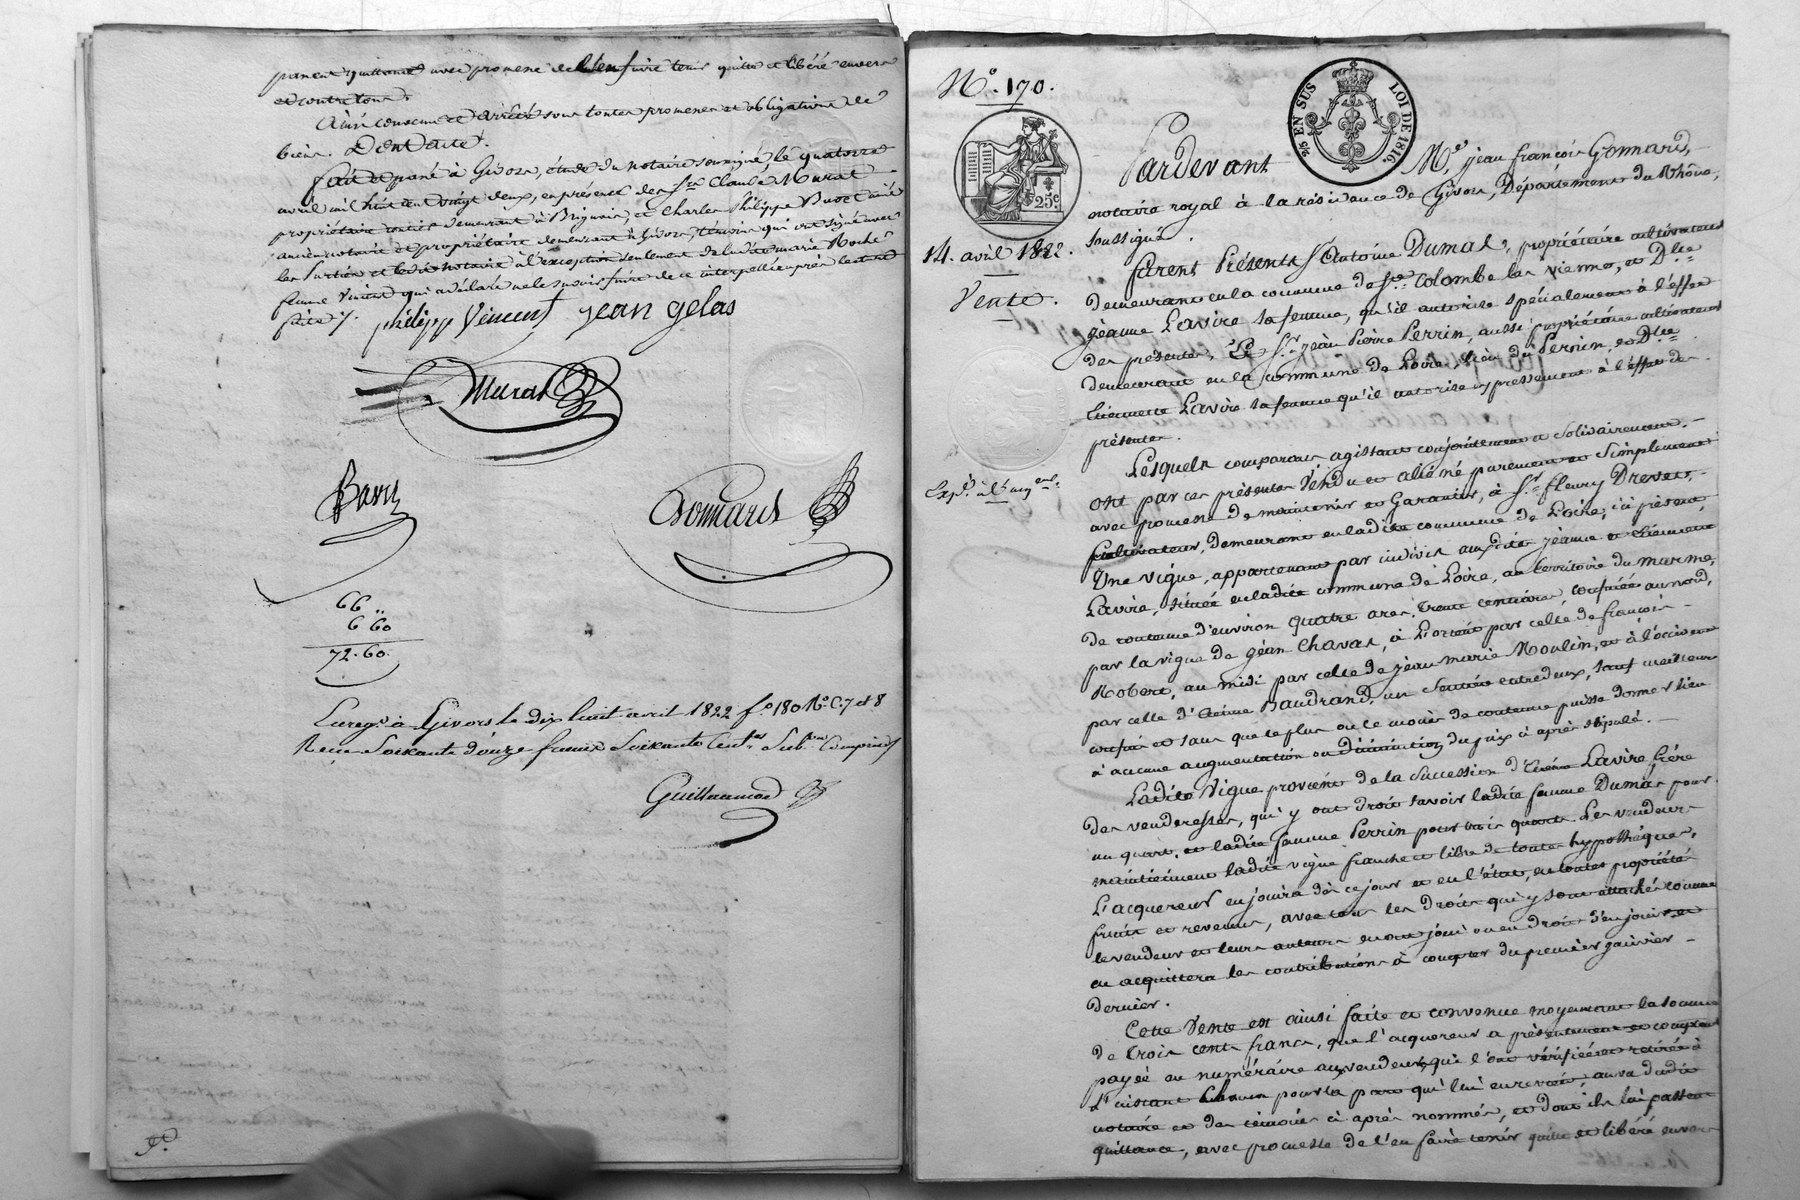 passent quittance avec promesse de l'en faire tenir quitte et libéré envers
et contre tous.
Ainsi convenu et arrêté sous toutes promesses et obligations de
biens. Dont acte.
fait et passé à Givors, étude du notaire soussigné, le quatorze
avril mil huit cent vingt deux, en présence des Srs Claude Murat
propriétaire rentier demeurant à Brignais, et Charles Philippe
ancien notaire et propriétaire demeurant à Givors, témoins qui ont signé avec
les parties et ledit notaire à l'exception seulement de ladite marie Roche
femme Vincent qui a déclaré ne le savoir faire de ce interpellée après lecture
faite ./.
philipp Vincent jean gelas
Murat
Gonnard
66 "
6 60
72.60.
Enregé à Givors le dix huit avril 1822 fo 180 Ro C. 7 et 8
Reçu Soixante douze francs Soixante Centes Subon Compris
Guillaumod
No. 170.
25 EN SUS LOI DE 1816.
25c
14. avril 1822.
Vente.
Pardevant Me. jean françois Gonnard,
notaire royal à la résidence de Givors, Département du Rhône,
soussigné.
furent Présents Sr. Antoine Dumas, propriétaire cultivateur
demeurant en la commune de Ste. Colombe les vienne, et Dlle
jeanne Lavire sa femme, qu'il autorise spécialement à l'effet
des présentes, Et Sr. jean Pierre Perrin, aussi propriétaire cultivateur
demeurant en la commune de Loire, lieu du Pernin, et Dlle
Etiennette Lavire sa femme qu'il autorise expressement à l'effet des
présentes.
Lesquels comparans agissant conjointement et solidairement,
ont par ces présentes Vendu et aliéné purement et simplement
avec promesse de maintenir et Garantir, à Sr. fleury Drevet,
cultivateur, demeurant en ladite commune de Loire, ici présent,
Une vigne, appartenant par indivis auxdites jeanne et Etiennette
Lavire, située en ladite commune de Loire, au territoire du
de contenue d'environ quatre ares, trente centiares, confinée au nord,
par la vigne de jean Chavas, à L'orient par celle de françois
Robert, au midi par celle de jean marie Moulin, et à l'occident
par celle d'Etienne Baudrand, un Sentier entredeux, sauf meilleurs
confins et sans que le plus ou le moins de contenue puisse donner lieu
à aucune augmentation ou diminution du prix ci après stipulé.
Ladite Vigne provient de la Succession d'Etienne Lavire, frère
des venderesses, qui y ont droit savoir ladite femme Dumas pour
un quart, et ladite femme Perrin pour trois quarts. Les vendeurs
maintiennent ladite vigne franche et libre de toute hypothèques,
L'acquereur en jouira dès ce jour et en l'état, en toutes propriété
fruits et revenus, avec tous les droits qui y sont attachés comme
les vendeurs et leurs auteurs en ont joui ou eu droit d'en jouir, et
en acquittera les contributions à compter du premier janvier
dernier.
Cette Vente est ainsi faite et convenue moyennant la somme
de trois cents francs, que l'acquereur a présentement et comptant
payée en numéraire aux vendeurs, qui l'ont vérifiée et retirée à
L'instant chacun pour la part qui lui en revient, au vu dudit
notaire et des témoins ci après nommés, et dont ils lui passent
quittance, avec promesse de l'en faire tenir quitte et libéré envers